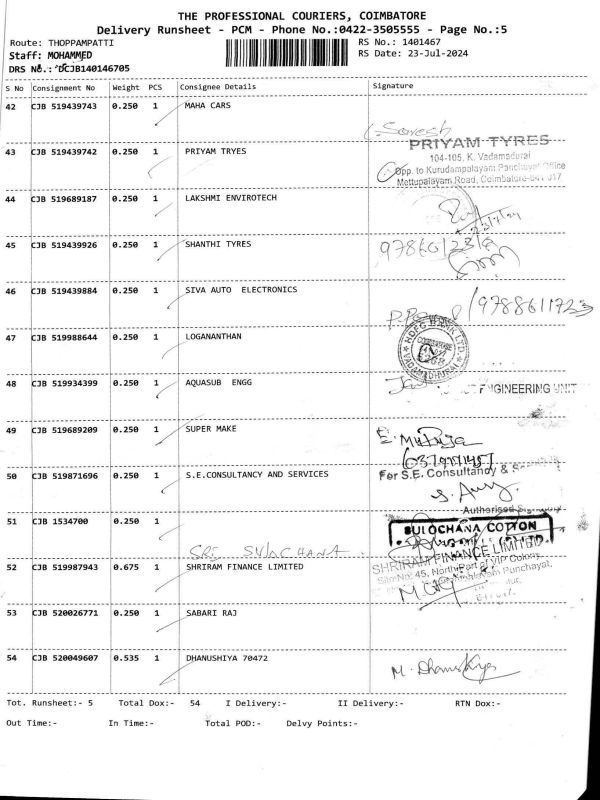 THE PROFESSIONAL COURIERS, COIMBATORE
Delivery Runsheet - PCM - Phone No.:0422-3505555 - Page No.:5
Route: THOPPAMPATTI RS No.: 1401467
Staff: MOHAMMED RS Date: 23-Jul-2024
DRS No.: DCJB140146705
S No Consignment No Weight PCS Consignee Details Signature
42 CJB 519439743 0.250 1 MAHA CARS
Suresh
43 CJB 519439742 0.250 1 PRIYAM TRYES
PRIYAM TYRES
104-105, K. Vadamadurai
Opp. to Kurudampalayam Panchayat Office
Mettupalayam Road, Coimbatore-641 017
44 CJB 519689187 0.250 1 LAKSHMI ENVIROTECH
23/7/24
45 CJB 519439926 0.250 1 SHANTHI TYRES
46 CJB 519439884 0.250 1 SIVA AUTO ELECTRONICS
9788611723
47 CJB 519988644 0.250 1 LOGANANTHAN
HDFC BANK LTD
48 CJB 519934399 0.250 1 AQUASUB ENGG
ENGINEERING UNIT
49 CJB 519689209 0.250 1 SUPER MAKE
50 CJB 519871696 0.250 1 S.E.CONSULTANCY AND SERVICES
For S.E. Consultancy &
Authorised
51 CJB 1534700 0.250 1
SULOCHANA COTTON
SRI SULOCHANA
52 CJB 519987943 0.675 1 SHRIRAM FINANCE LIMITED
SHRIRAM FINANCE LIMITED
Site No: 45, North Part of VIP Colony,
Punchayat,
53 CJB 520026771 0.250 1 SABARI RAJ
54 CJB 520049607 0.535 1 DHANUSHIYA 70472
M. Dhanushiya
Tot. Runsheet:- 5 Total Dox:- 54 I Delivery:- II Delivery:- RTN Dox:-
Out Time:- In Time:- Total POD:- Delvy Points:-